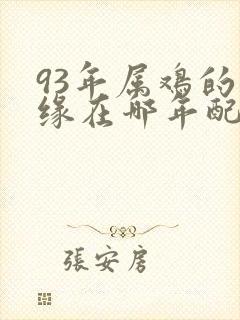 93年属鸡的
缘在哪年配
張安房